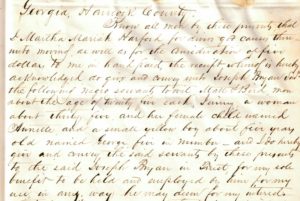 Georgia, Hancock County.
Know all men by these presents that
I Martha Mariah Harford for divers good causes there
unto moving as well as for the consideration of five
dollars to me in hand paid the receipt whereof is hereby
acknowledged do give and convey unto Joseph Bryan
the following negro servants to wit Moll & Bird men
about the age of twenty five each, a woman
about thirty five and her female child named
and a small yellow boy about five years
old named George five in number and I do hereby
give and convey the said servants by these presents
to the said Joseph Bryan in Trust for my sole
benefit to be held and employed by him for my
use in any way he may deem for my interest